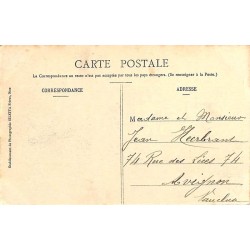 CARTE POSTALE
La Correspondance au recto n'est pas acceptée par tous les pays étrangers. (Se renseigner à la Poste.)
CORRESPONDANCE
ADRESSE
Madame et Monsieur
Jean Heerbrant
74 Rue des Lices 74
Avignon
Vaucluse